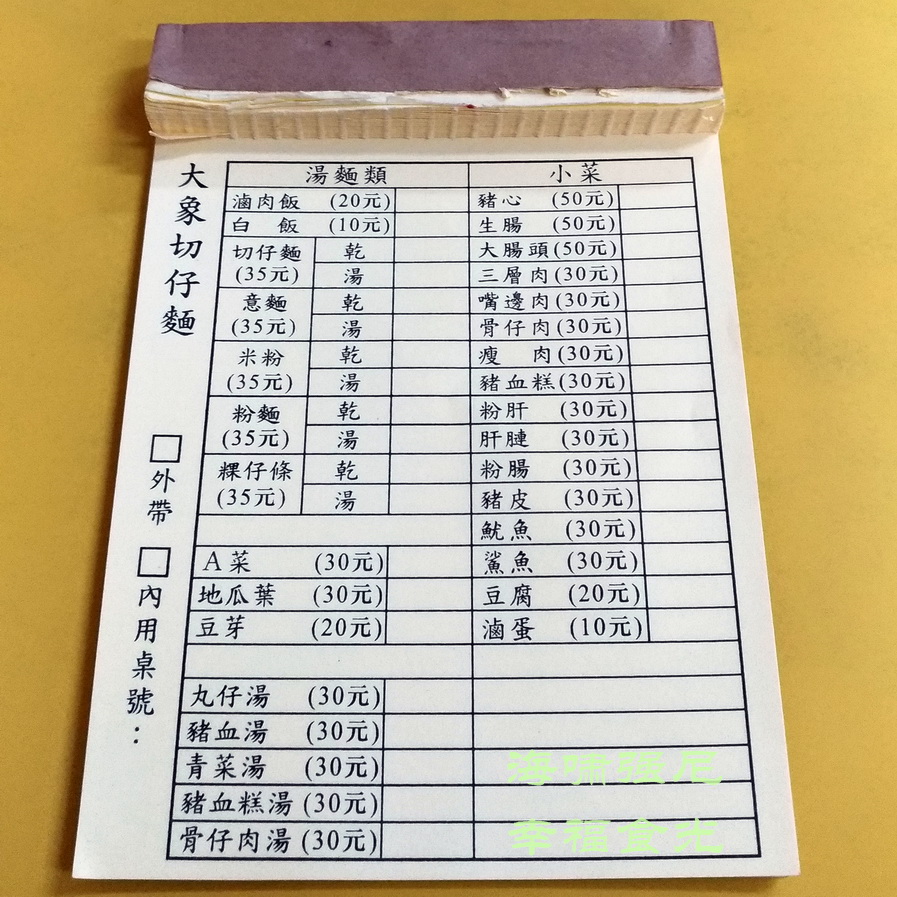 大象切仔麵
□外帶 □內用桌號：
湯麵類
滷肉飯 (20元)
白 飯 (10元)
切仔麵 (35元) 乾 湯
意麵 (35元) 乾 湯
米粉 (35元) 乾 湯
粉麵 (35元) 乾 湯
粿仔條 (35元) 乾 湯
A菜 (30元)
地瓜葉 (30元)
豆芽 (20元)
丸仔湯 (30元)
豬血湯 (30元)
青菜湯 (30元)
豬血糕湯 (30元)
骨仔肉湯 (30元)
小菜
豬心 (50元)
生腸 (50元)
大腸頭 (50元)
三層肉 (30元)
嘴邊肉 (30元)
骨仔肉 (30元)
瘦 肉 (30元)
豬血糕 (30元)
粉肝 (30元)
肝腱 (30元)
粉腸 (30元)
豬皮 (30元)
魷魚 (30元)
鯊魚 (30元)
豆腐 (20元)
滷蛋 (10元)
海嘯強尼
幸福食光